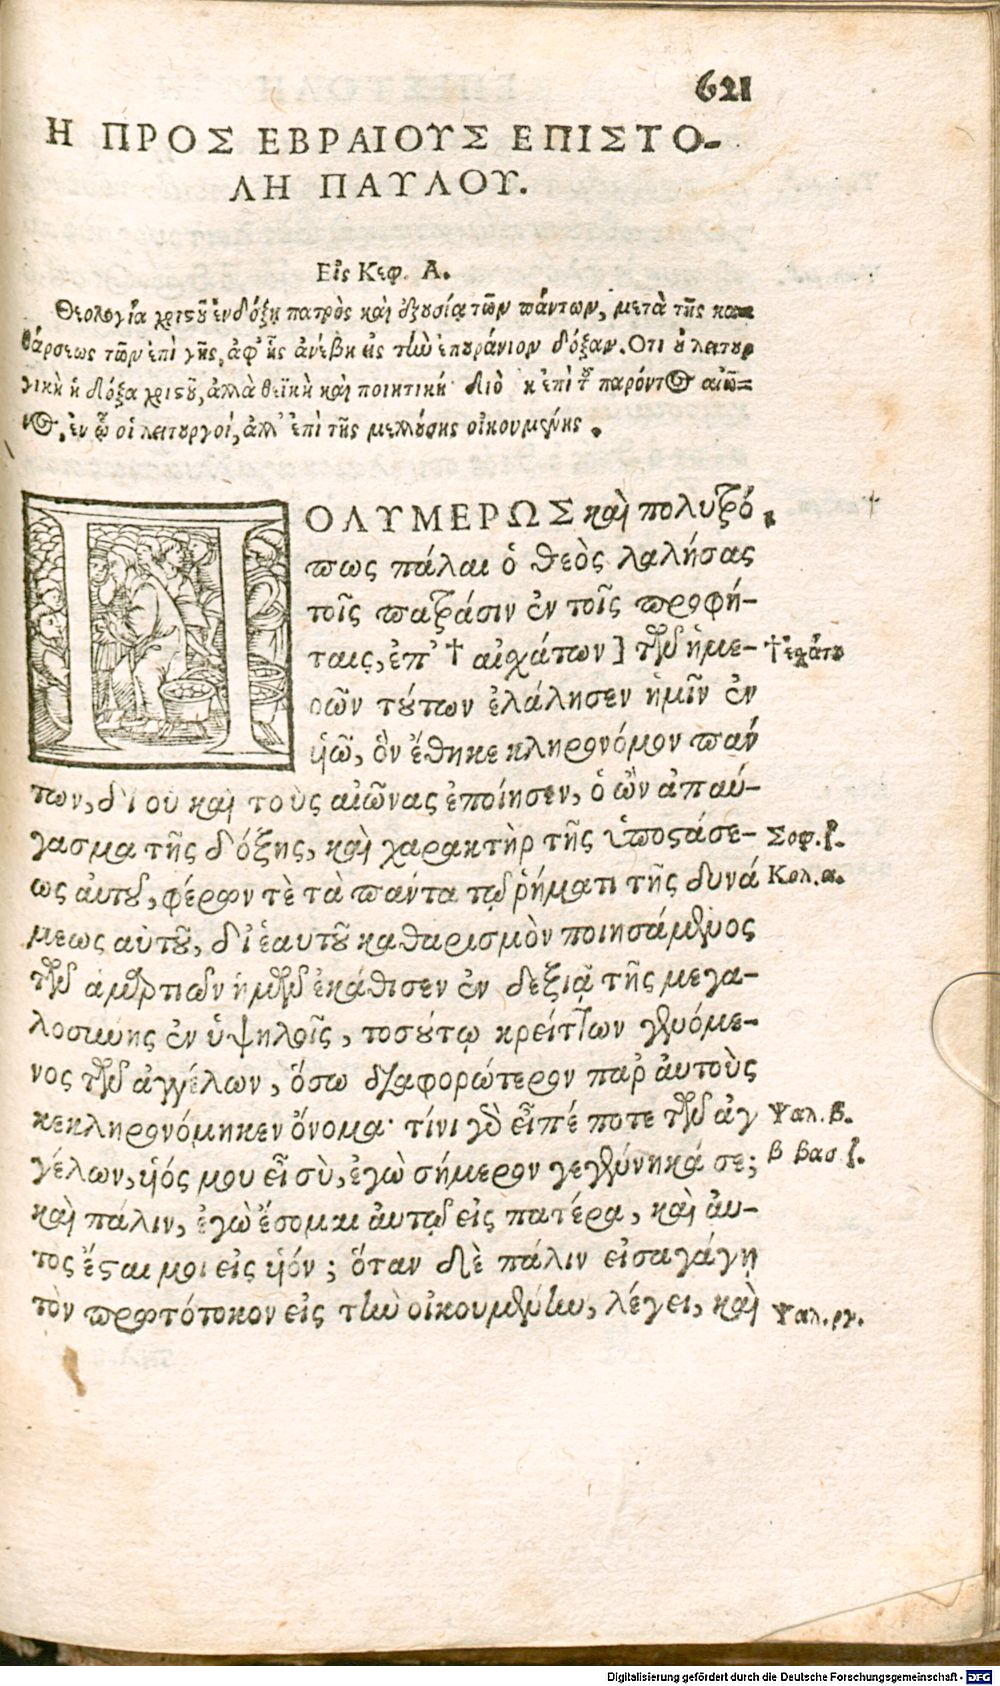 621
Η ΠΡΟΣ ΕΒΡΑΙΟΥΣ ΕΠΙΣΤΟ-
ΛΗ ΠΑΥΛΟΥ.
Εἰς Κεφ. Α.
Θεολογία χριστοῦ ἐν δόξῃ πατρὸς καὶ ἐξουσίᾳ τῶν πάντων, μετὰ τῆς κα-
θάρσεως τῶν ἐπὶ γῆς, ἀφ' ἧς ἀνέβη εἰς τὴν ἐπουράνιον δόξαν. Οτι οὐ λειτουρ
γικὴ ἡ δόξα χριστοῦ, ἀλλὰ θεϊκὴ καὶ ποιητική· διὸ κ ἐπὶ τοῦ παρόντος αἰῶ-
νος, ἐν ᾧ οἱ λειτουργοί, ἀλλ' ἐπὶ τῆς μελλούσης οἰκουμένης.
ΠΟΛΥΜΕΡΩΣ καὶ πολυτρό
πως πάλαι ὁ θεὸς λαλήσας
τοῖς πατράσιν ἐν τοῖς προφή-
ταις, ἐπ' † αἰσχάτων] τῶν ἡμε- † ἐσχάτου
ρῶν τούτων ἐλάλησεν ἡμῖν ἐν
υἱῷ, ὃν ἔθηκε κληρονόμον πάν
των, δι οὗ καὶ τοὺς αἰῶνας ἐποίησεν, ὁ ὢν ἀπαύ-
γασμα τῆς δόξης, καὶ χαρακτὴρ τῆς ὑποστάσε- Σοφ. ζ.
ως αὐτοῦ, φέρων τὲ τὰ πάντα τῷ ῥήματι τῆς δυνά Κολ. α.
μεως αὐτοῦ, δι' ἑαυτοῦ καθαρισμὸν ποιησάμενος
τῶν ἁμαρτιῶν ἡμῶν ἐκάθισεν ἐν δεξιᾷ τῆς μεγα-
λοσύνης ἐν ὑψηλοῖς, τοσούτῳ κρείττων γενόμε-
νος τῶν ἀγγέλων, ὅσω διαφορώτερον παρ' αὐτοὺς
κεκληρονόμηκεν ὄνομα· τίνι γὰρ εἶπέ ποτε τῶν ἀγ Ψαλ. β.
γέλων, υἱός μου εἶ σὺ, ἐγὼ σήμερον γεγέννηκά σε; β βασ ζ.
καὶ πάλιν, ἐγὼ ἔσομαι αὐτῷ εἰς πατέρα, καὶ αὐ-
τὸς ἔσται μοι εἰς υἱόν; ὅταν δὲ πάλιν εἰσαγάγῃ
τὸν πρωτότοκον εἰς τὴν οἰκουμένην, λέγει, καὶ Ψαλ. ργ.
Digitalisierung gefördert durch die Deutsche Forschungsgemeinschaft - DFG